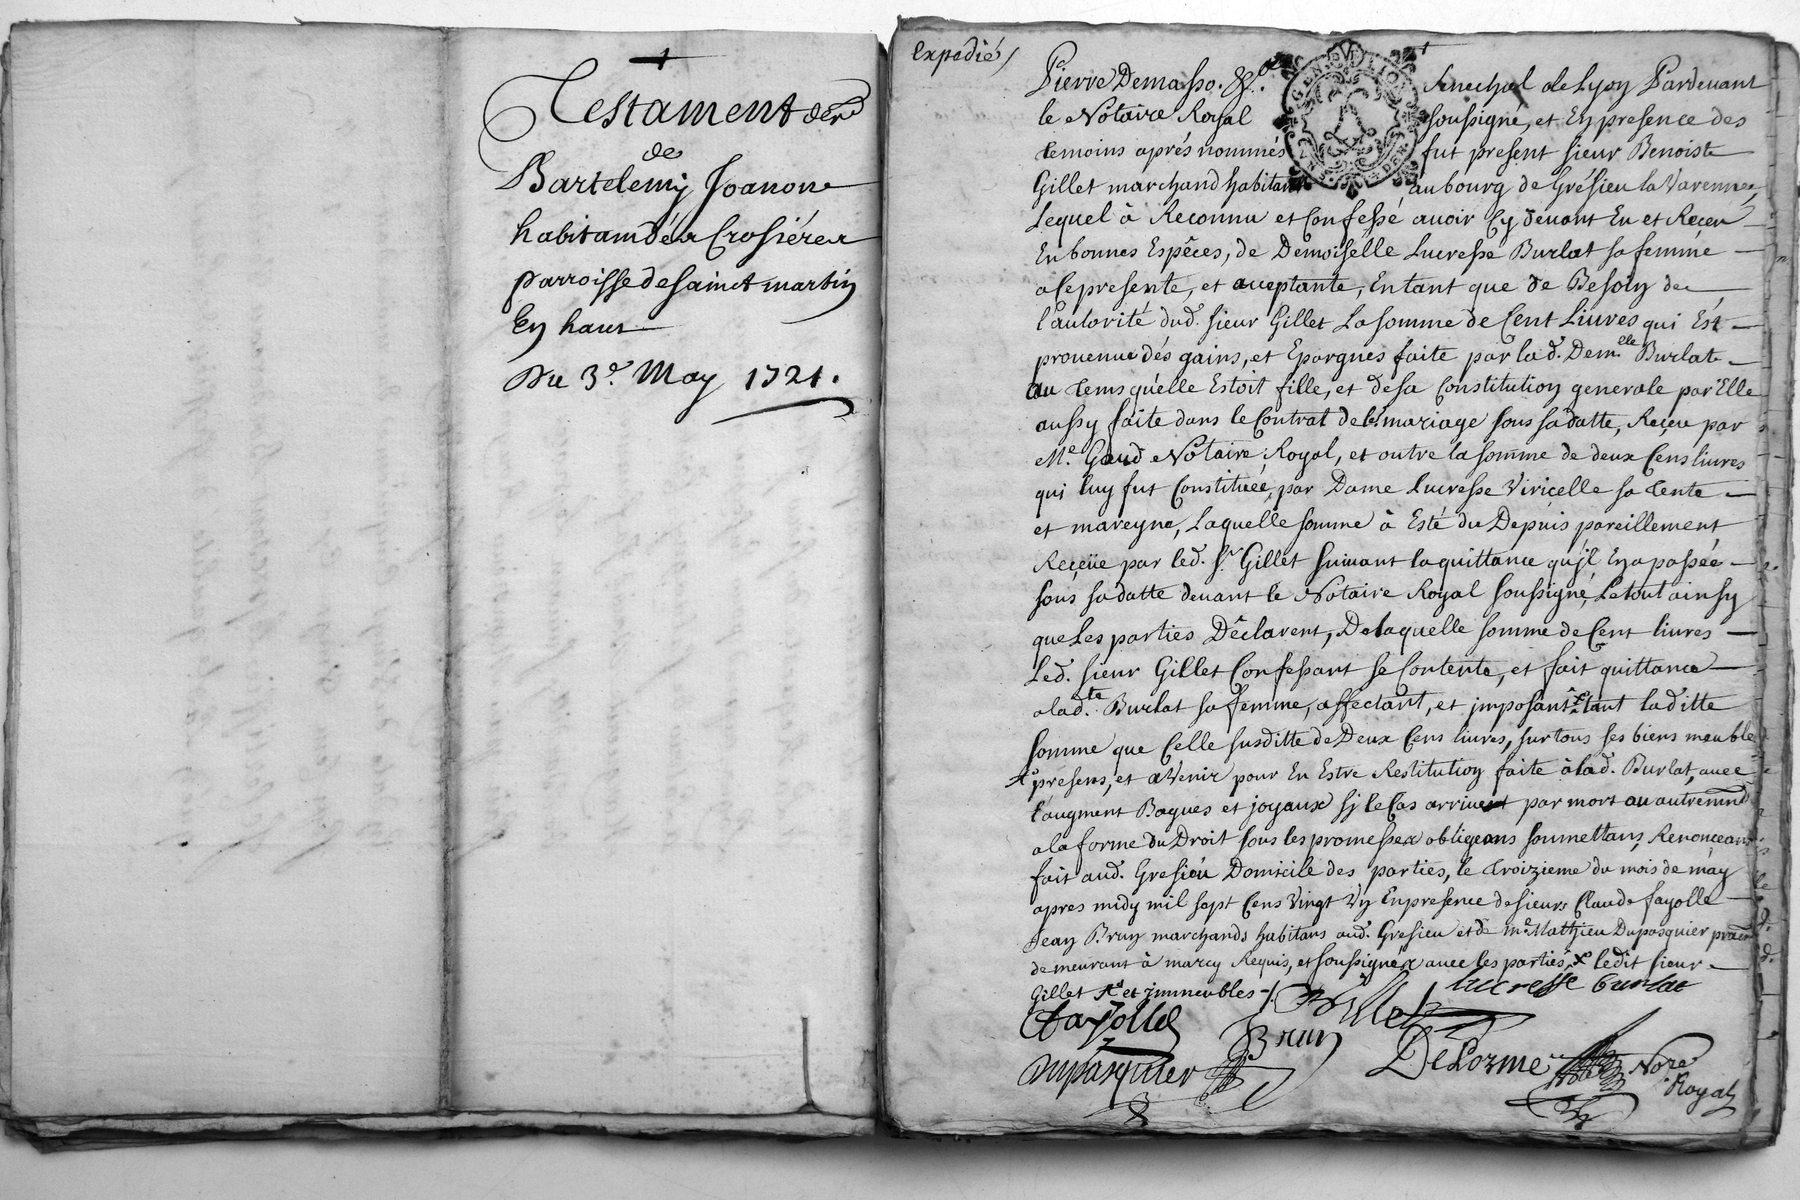 Testament der.
de
Bartelemy Joanon
habitant dés Crosiéres
parroisse de sainct martin
En haut
Du 3e. May 1721.
Expedié
Pierre Demasso. &c. Senechal de Lyon Pardevant
le Notaire Royal soussigné, et En presence des
temoins aprés nommés fut present sieur Benoist
Gillet marchand habitant au bourg de Grésieu la Varenne,
Lequel à Reconnu et Confessé avoir Cy devant Eu et Receu
En bonnes Espêces, de Demoiselle Lucresse Burlat sa femme
a ce presente, et aceptante, En tant que de Besoin de
l'autorité dud. sieur Gillet La somme de Cent Livres qui Est
provenue dés gains, et Epargnes faite par lad. Demlle. Burlat
au tems qu'elle Estoit fille, et de sa Constitution generale par Elle
aussy faite dans le Contrat de lr. mariage sous sa datte, Reçeu par
Me. Gaud Notaire Royal, et outre la somme de deux Cens livres
qui luy fut Constituée, par Dame Lucresse Viricelle sa tente
et mareyne, Laquelle somme à Esté du Depuis pareillement
Reçeüe par led. Sr. Gillet suivant la quittance qu'jl En a passée
sous sa datte devant le Notaire Royal soussigné, Le tout ainsy
que Les parties Déclarent, De laquelle somme de Cent livres
Led. sieur Gillet Confessant se Contente, et fait quittance
a ladte. Burlat sa femme, affectant, et jmposant tant laditte
somme que Celle susditte de Deux Cens livres, sur tous ses biens meubles
presens, et avenir pour En Estre Restitution faite à lad. Burlat, avec
l'augment Bagues et joyaux sj le Cas arrivent par mort ou autrement
a la forme du Droit sous les promesses obligeans soumettans, Renonçeans
fait aud. Gresieu Domicile des parties, le troizieme du mois de may
apres midy mil sept Cens Vingt Vn En presence de sieurs Claude fayolle
Jean Brun marchands habitans aud. Gresieu et de me. Mathieu Dupasquier
demeurant à marcy Requis, et soussignés avec les parties, x ledit sieur
Gillet et jmmeubles
BGillet Lucresse burlat
CFayolle Brun
Dupasquier DeLorme Nore
Royal